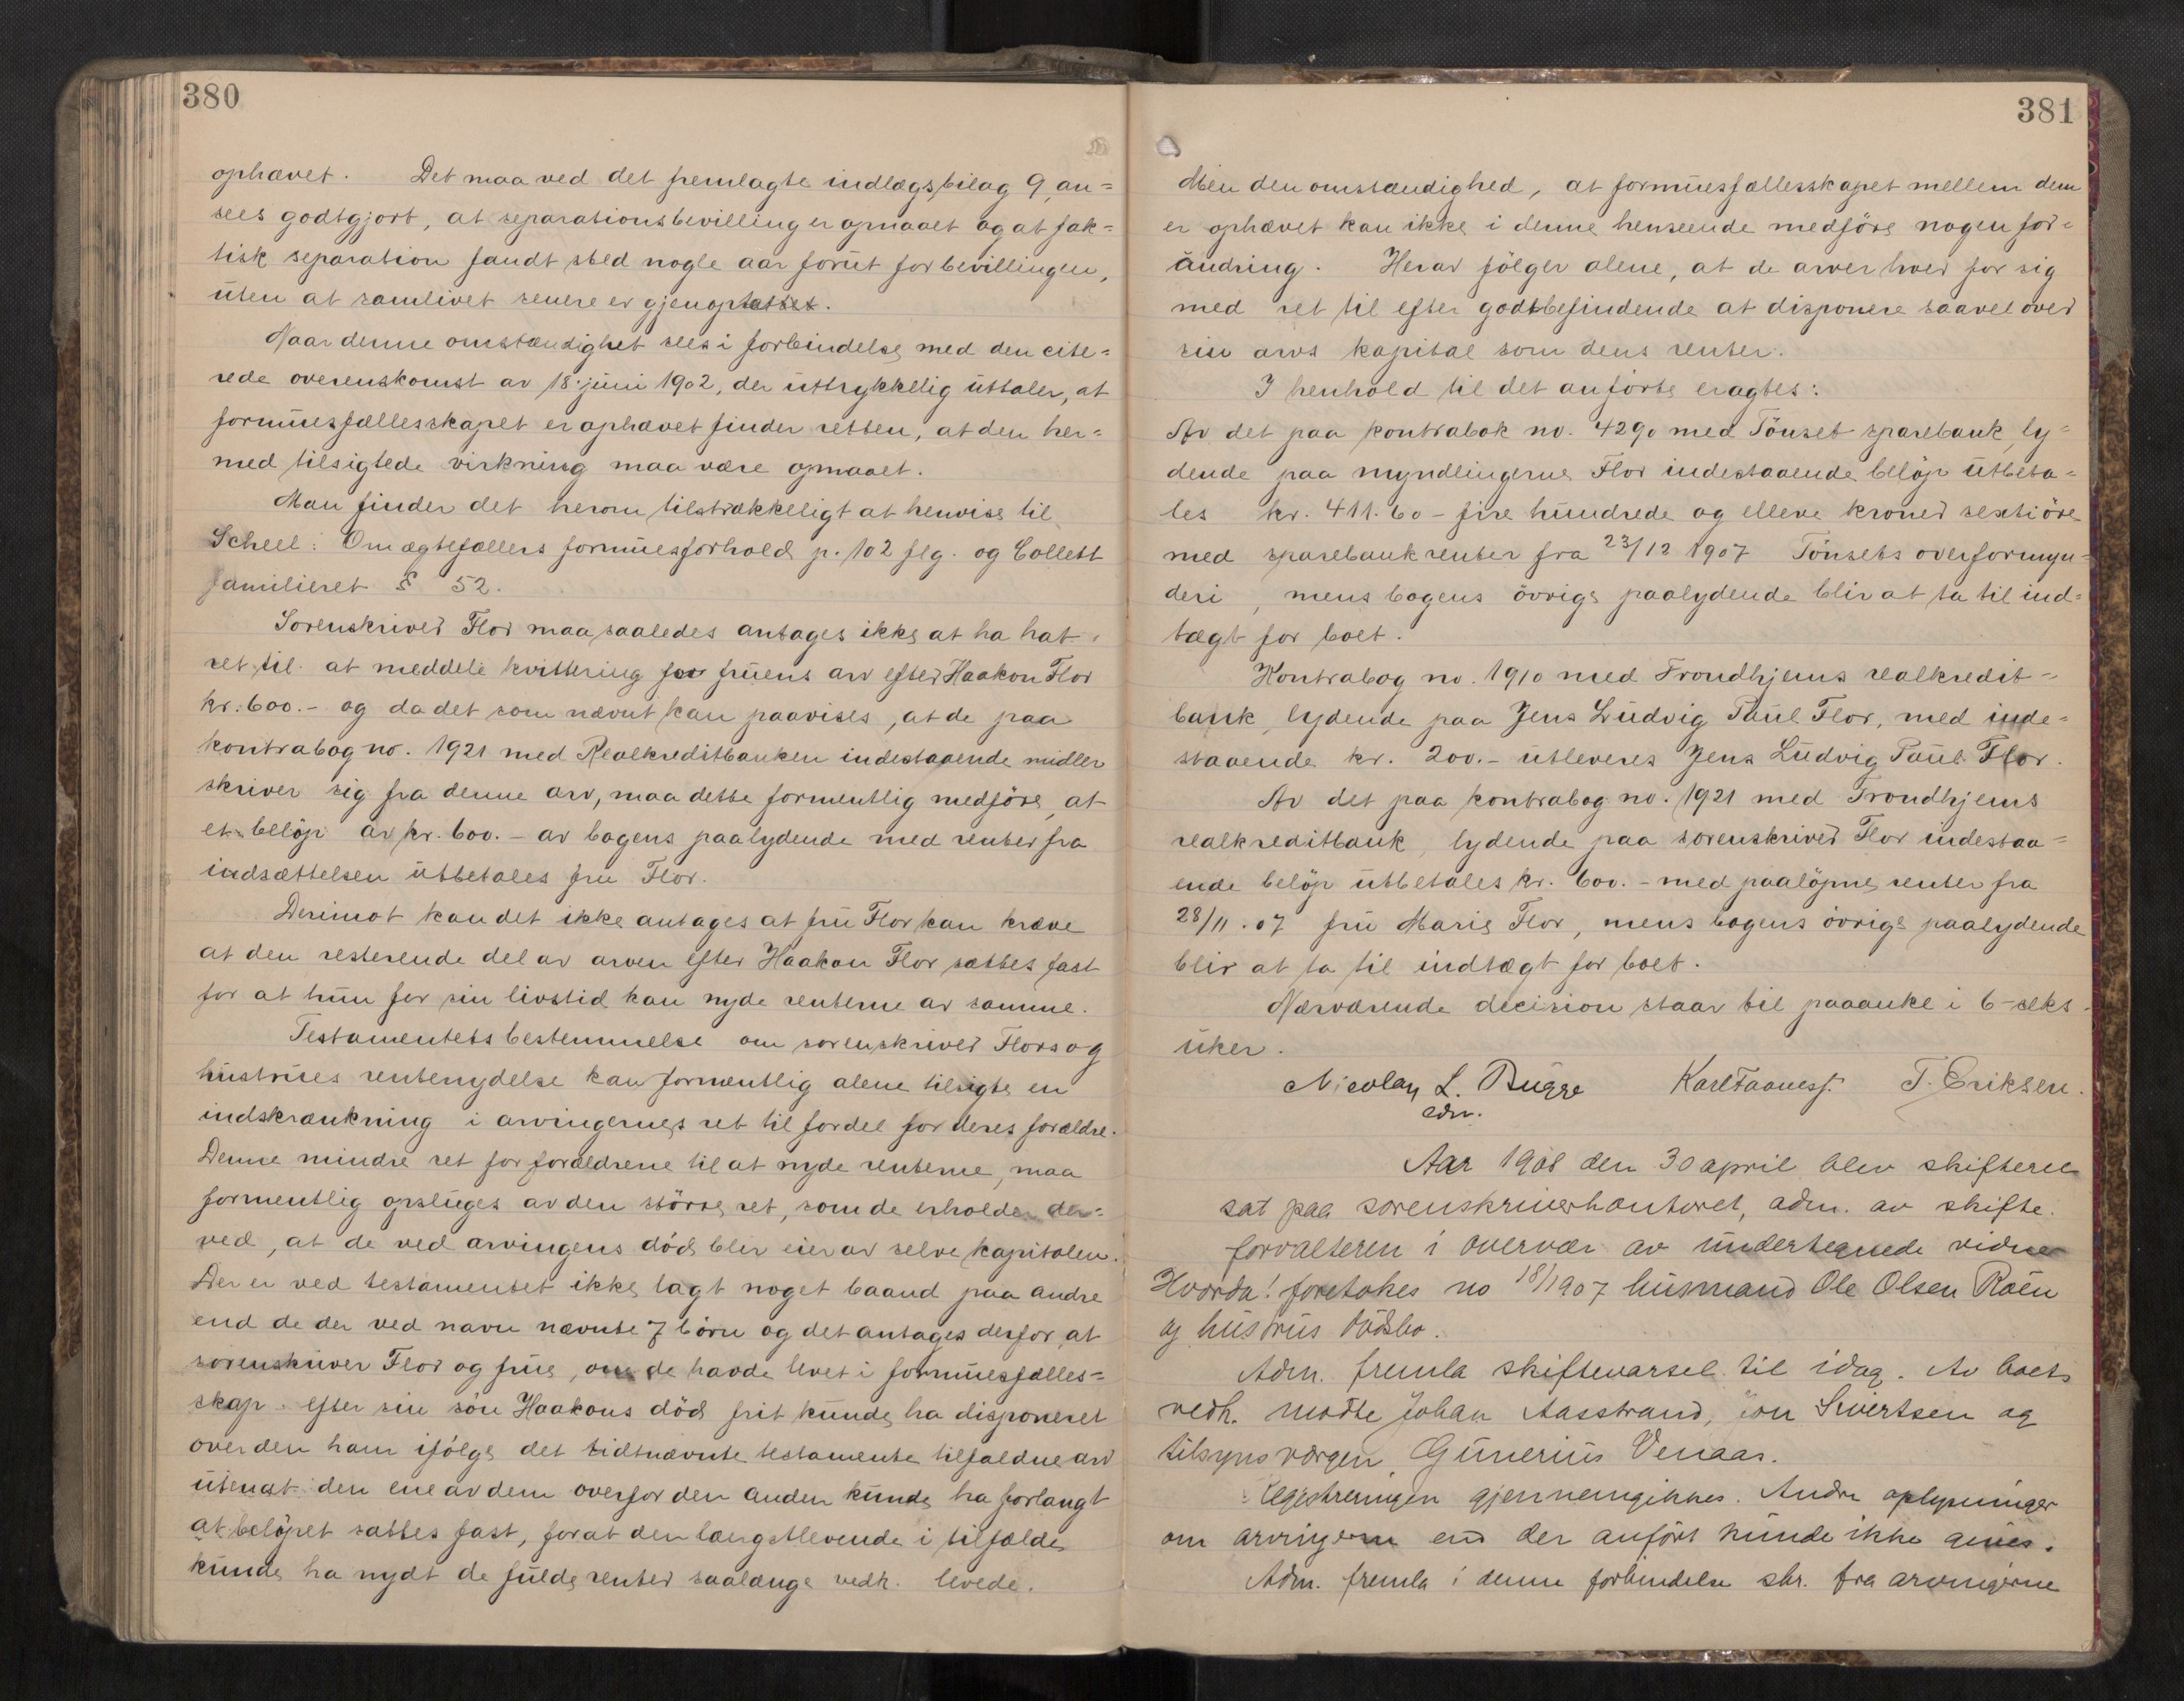 380
ophævet. Det maa ved det fremlagte indlægs bilag 9, an=
sees godtgjort, at separationsbevilling er opnaaet og at fak=
tisk separation fandt sted nogle aar forut for bevillingen,
uten at samlivet senere er gjenoptattet.
Naar denne omstændighet sees i forbindelse med den cite=
rede overenskomst av 18. juni 1902, der uttrykkelig uttaler, at
formuesfællesskapet er ophævet finder retten, at den her=
med tilsigtede virkning maa være opnaaet.
Man finder det herom tilstrækkeligt at henvise til
Scheel: Om ægtefællers formuesforhold p. 102 flg. og Collett
familieret § 52.
Sorenskriver Flor maa saaledes antages ikke at ha hat
ret til at meddele kvittering for fruens arv efter Haakon Flor
kr. 600.- og da det som nævnt kan paavises, at de paa
kontrabog no. 1921 med Realkreditbanken indestaaende midler
skriver sig fra denne arv, maa dette formentlig medföre, at
et belöp av kr. 600.- av bogens paalydende med renter fra
indsættelsen utbetales fru Flor.
Derimot kan det ikke antages at fru Flor kan kræve
at den resterende del av arven efter Haakon Flor sættes fast
for at hun for sin livstid kan nyde renterne av samme.
Testamentets bestemmelse om sorenskriver Flors og
hustrues rentenydelse kan formentlig alene tilsigte en
indskrænkning i arvingernes ret til fordel for deres forældre.
Denne mindre ret for forældrene til at nyde renterne, maa
formentlig opsluges av den större ret, som de erholder der=
ved, at de ved arvingens död blir eier av selve kapitalen.
Der er ved testamentet ikke lagt noget baand paa andre
end de der ved navn nævnte 7 börn og det antages derfor, at
sorenskriver Flor og frue, om de havde levet i formuesfælles=
skap efter sin sön Haakons död frit kunde ha disponeret
over den ham ifölge det tidtnævnte testamente tilfaldne arv
uten at den ene av dem overfor den anden kunde ha forlangt
at belöpet sattes fast, forat den længstlevende i tilfælde
kunde ha nydt de fulde renter saalænge vedk. levede.
381
Men den omstændighed, at formuesfællesskapet mellem dem
er ophævet kan ikke i denne henseende medföre nogen for=
ändring. Herav fölger alene, at de arver hver for sig
med ret til efter godtbefindende at disponere saavel over
sin arvs kapital som dens renter.
I henhold til det anförte eragtes:
Av det paa kontrabok no. 4290 med Tönset sparebank, ly=
dende paa myndlingerne Flor indestaaende belöp utbeta=
les kr. 411.60 - fire hundrede og elleve kroner sextiöre
med sparebankrenter fra 23/12 1907 Tönsets overformyn=
deri, mens bogens övrige paalydende blir at ta til ind=
tægt for boet.
Kontrabog no. 1910 med Trondhjems realkredit=
bank, lydende paa Jens Ludvig Paul Flor, med inde=
staaende kr. 200.- utleveres Jens Ludvig Paul Flor.
Av det paa kontrabog no. 1921 med Trondhjems
realkreditbank, lydende paa sorenskriver Flor indestaa=
ende belöp utbetales kr. 600.- med paalöpne renter fra
28/11.07 fru Marie Flor, mens bogens övrige paalydende
blir at ta til indtægt for boet.
Nærværende decision staar til paaanke i 6-seks
uker.
Nicolay L. Bugge Karl T. Eriksen.
adm.
Aar 1908 den 30 april blev skifteret
sat paa sorenskriverkontoret, adm. av skifte
forvalteren i overvær av undertegnede vidne
Hvorda! foretokes no 18/1907 husmand Ole Olsen Roën
og hustrus dödsbo.
Adm. fremla skiftevarsel til idag. Av boets
vedk. mødte Johan Aasstrand, Jon Sivertsen og
tilsynsværgen Gunerius Venaas.
Registreringen gjennemgikkes. Andre oplysninger
om arvingerne end der anfört kunde ikke gives.
Adm. fremla i denne forbindelse skr. fra arvingerne